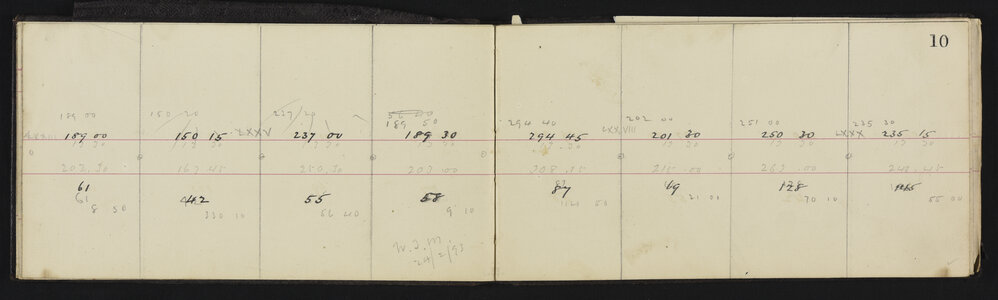 10
189 00 150 20 237/20 189 50 294 40 202 00 251 00 235 30
189 00 150 15 LXXV 237 00 189 30 294 45 LXXVIII 201 30 250 30 LXXX 235 15
13 30 13 30 13 30 13 30 13 30 13 30 13 30
202.30 163 45 250.30 203 00 308.15 215.00 263.00 248.45
61 42 55 58 87 69 128
61
8 50 330 10 56 40 9 10 21 00 70 10 55 00
W.J.M
24/2/93